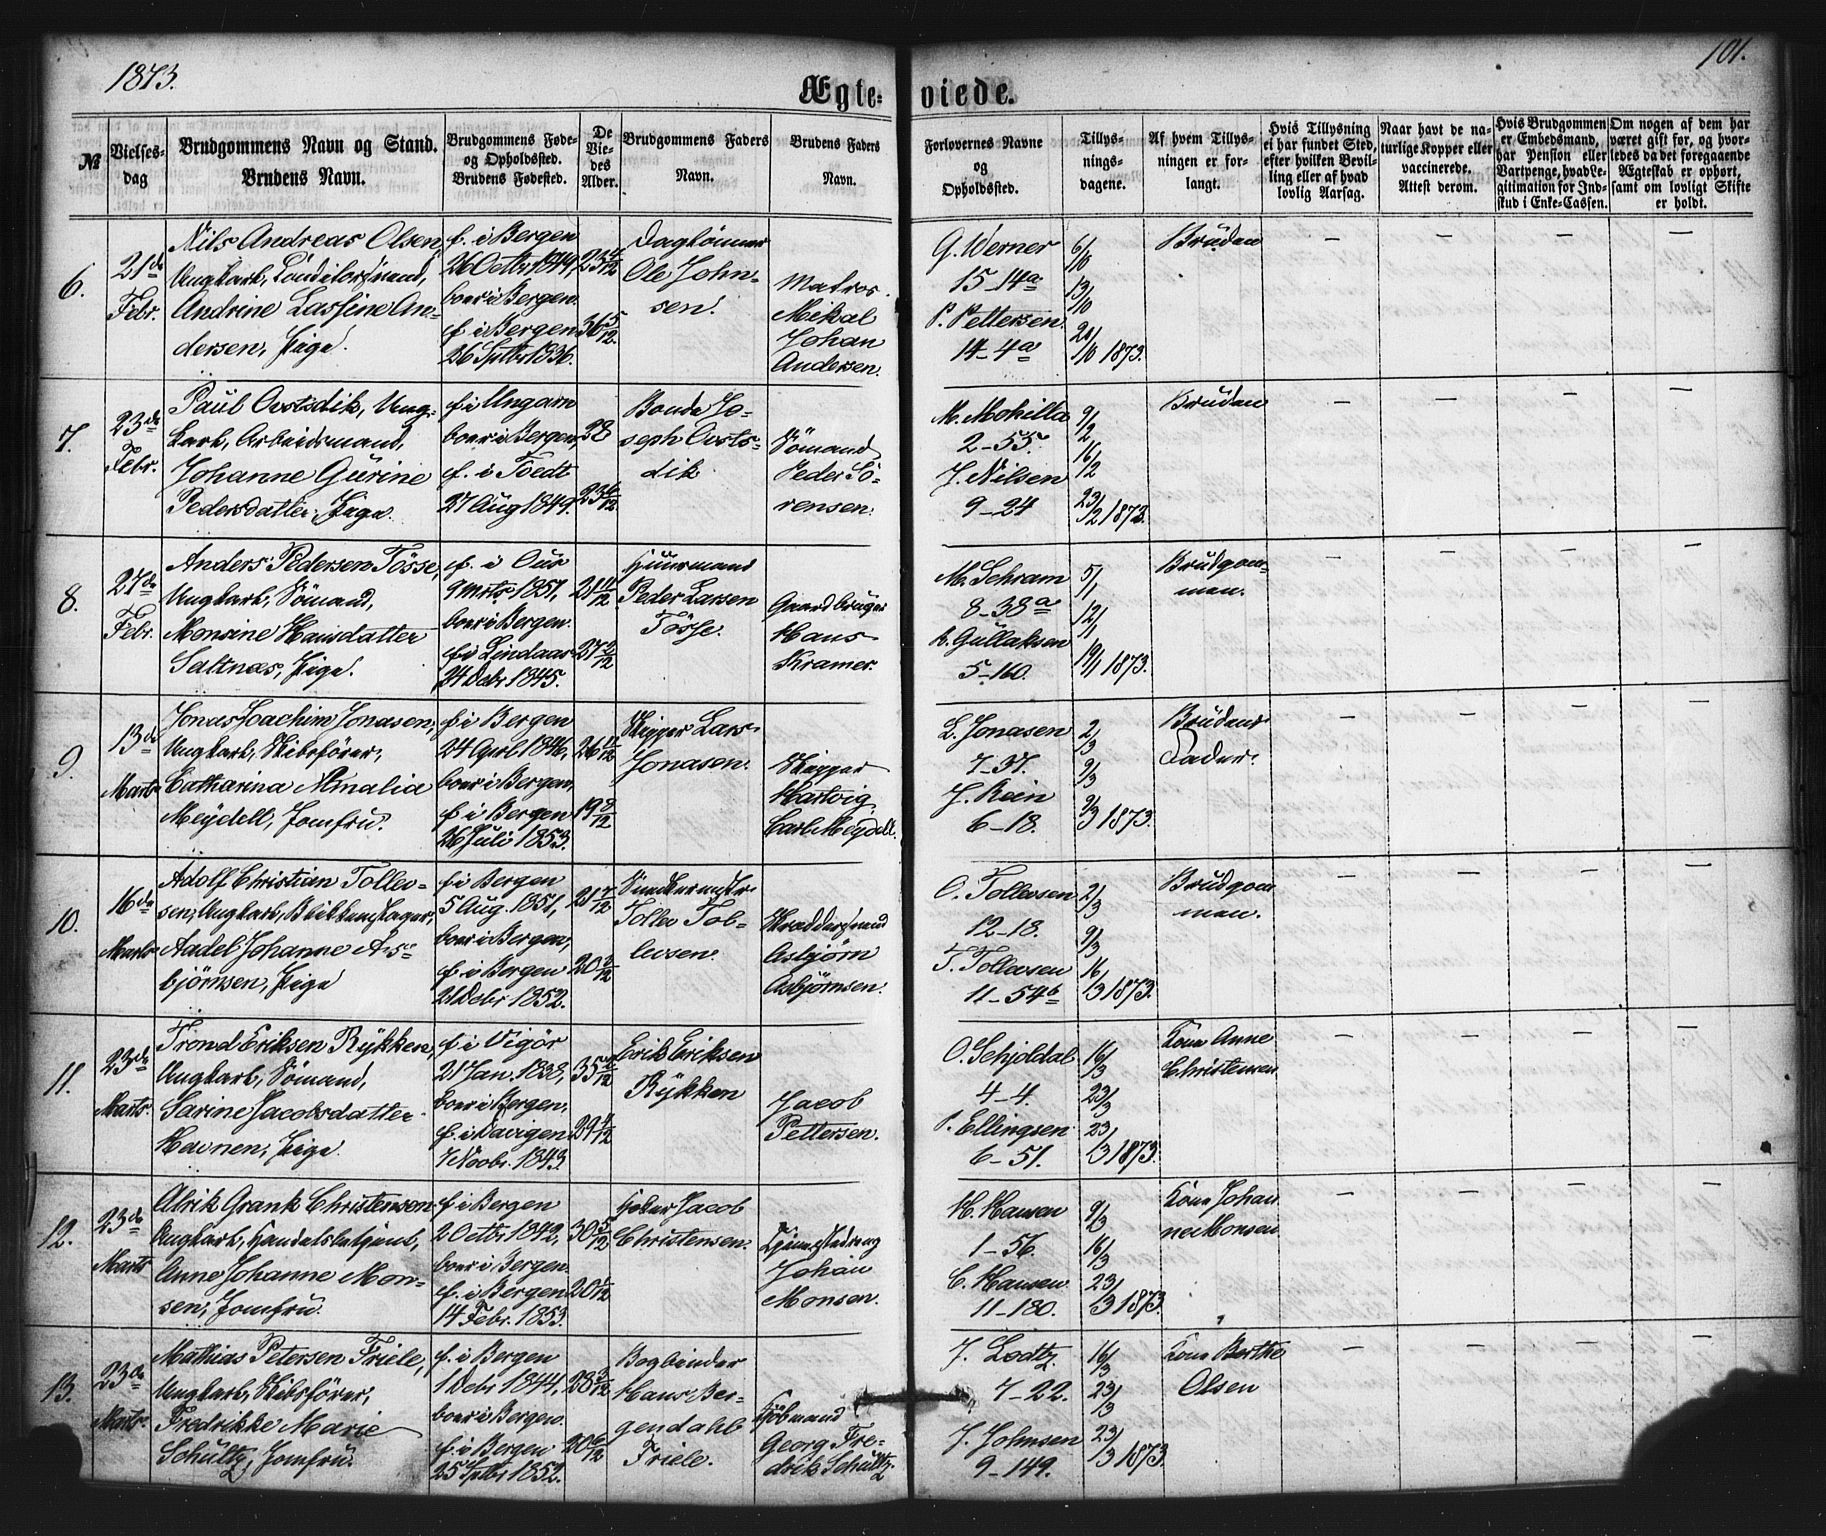 1873.
101.
Ægte-
viede.
№
Vielses-
dag
Brudgommens Navn og Stand.
Brudens Navn.
Brudgommens Føde-
og Opholdssted.
Brudens Fødested.
De
Vie-
des
Alder.
Brudgommens Faders
Navn.
Brudens Faders
Navn.
Forlovernes Navne
og
Opholdssted.
Tillys-
nings-
dagene.
Af hvem Tillys-
ningen er for-
langt.
Hvis Tillysning
ei har fundet Sted,
efter hvilken Bevil-
ling eller af hvad
lovlig Aarsag.
Naar havt de na-
turlige Kopper eller
vaccinerede.
Attest derom.
Hvis Brudgommen
er Embedsmand,
har Pension eller
Vartpenge, hvad Le-
gitimation for Ind-
skud i Enke-Cassen.
Om nogen af dem har
været gift for, og hvor-
ledes da det foregaaende
Ægteskab er ophørt,
samt om lovligt Skifte
er holdt.
6.
21de
Febr.
Nils Andreas Olsen,
Ungkarl,
Andrine Lassine An-
dersen, Pige.
f. i Bergen
26 Octbr 1849,
boer i Bergen.
f. i Bergen
26 Septbr 1836.
23 4/12
36 5/12
Daglönner
Ole John-
sen.
Matros
Mikal
Johan
Andersen.
G. Werner
15-14a
P. Pettersen.
14-4a
6/10
13/10
20/10 1873.
Bruden
7.
23de
Febr.
Paul Ovstsdik, Ung-
karl, Arbeidsmand,
Johanne Gurine
Pedersdatter, Pige.
f. i Ungarn
boer i Bergen,
f. i Tvedt
27 Aug 1849.
28
23 6/12
Bonde Jo-
seph Ovsts-
dik
Sömand
Peder Sö-
rensen.
M. Mohilla
2-55.
J. Nilsen
9-24
9/2
16/2
23/2 1873.
Bruden
8.
27de
Febr.
Anders Pedersen Tösse,
Ungkarl, Sömand,
Monsine Hansdatter
Saltnæs, Pige.
f. i Ous
9 Mrts 1851,
boer i Bergen.
f. i Lindaas
24 Debr 1845.
21 11/12
27 2/12
Huusmand
Peder Larsen
Tösse.
Gaardbruger
Hans
Kramer.
M. Schram
8-38a
R. Gullaksen
5-160.
5/1
12/1
19/1 1873.
Brudgom-
men.
9.
13de
Marts
Jonas Joachim Jonasen,
Ungkarl, Skibsförer,
Catharina Amalia
Meydell, Jomfru.
f. i Bergen
24 April 1846,
boer i Bergen,
f. i Bergen
26 Juli 1853.
26 11/12
19 8/12
Skipper Lars
Jonasen.
Skipper
Hartvig
Carl Meydell.
L. Jonasen
7-37.
J. Rein
6-18.
2/3
9/3
9/3 1873.
Brudens
Fader.
10.
16de
Marts
Adolf Christian Tollev-
sen, Ungkarl, Blikkenslager,
Aadel Johanne As-
bjørnsen, Pige
f. i Bergen
5 Aug. 1851,
boer i Bergen,
f. i Bergen
21 Debr 1852.
21 7/12
20 3/12
Tollev Tol-
levsen.
Skræddersvend
Asbjørn
Asbjørnsen.
O. Tollevsen
12-18.
T. Tollevsen
11-54b
2/3
9/3
16/3 1873.
Brudgom
men.
11.
23de
Marts.
Trond Eriksen Rykken,
Ungkarl, Sömand,
Sarine Jacobsdatter
Havnen, Pige.
f. i Vigör
21 Jan. 1838,
boer i Bergen,
f. i Davigen
7 Novbr. 1843.
35 2/12
29 4/12
Erik Eriksen
Rykken
Jacob
Pettersen.
O. Schjoldal
4-4.
P. Ellingsen
6-51.
16/3
23/3
23/3 1873.
Kone Anne
Christensen
12.
23de
Marts
Alrik Grank Christensen
Ungkarl, Handelsbetjent,
Anne Johanne Mon-
sen, Jomfru.
f. i Bergen
2 Octbr 1842,
boer i Bergen.
f. i Bergen
14 Febr. 1853.
30 5/12
20 1/12
Jacob
Christensen.
Johan
Monsen.
H. Hansen
1-56.
C. Hansen
11-180.
9/3
16/3
23/3 1873.
Kone Johan
ne Monsen
13.
23de
Marts.
Mathias Petersen Friele,
Ungkarl, Skibsförer,
Fredrikke Marie
Schültz, Jomfru.
f. i Bergen
1 Debr 1844,
boer i Bergen.
f. i Bergen
25 Septbr 1852.
28 3/12
20 6/12
Bogbinder
Hans Ber-
gendahl
Friele.
Kjöbmand
Georg Fre-
drik Schültz.
J. Lodtz.
7-22.
J. Johnsen
9-149.
16/3
23/3
23/3 1873.
Kone Berthe
Olsen